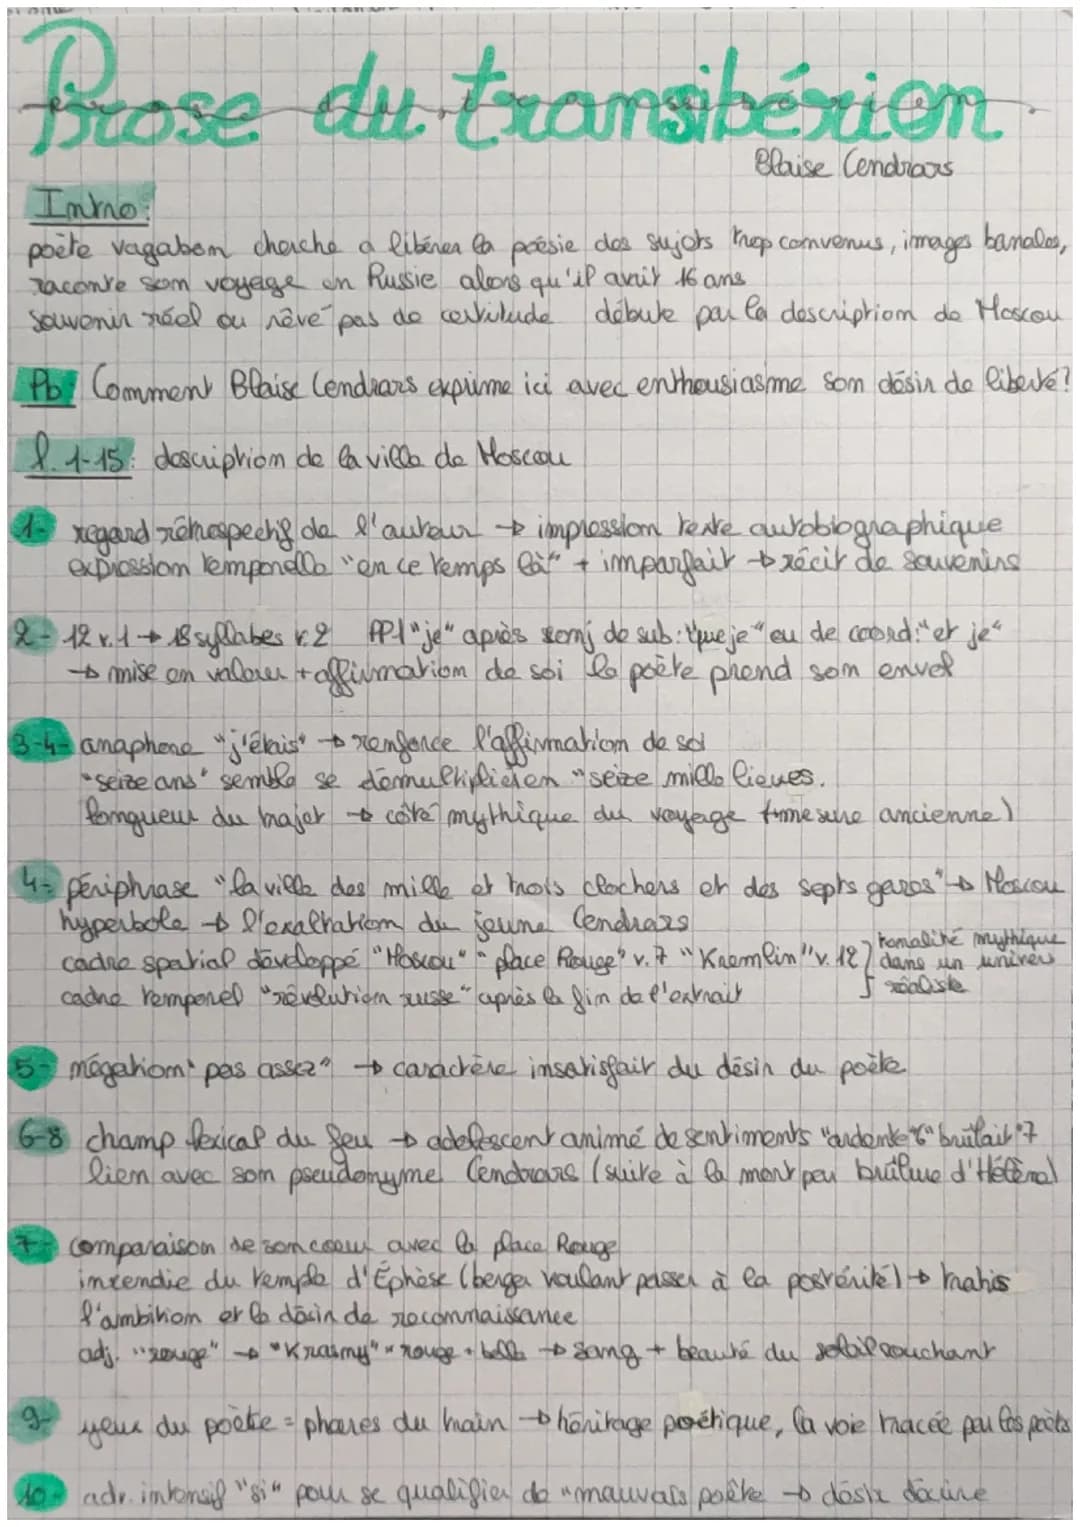 Prose du transibérien
Blaise Cendrars
Intro:
poète vagabon cherche a libérer la poésie des sujets trop convenus, images banales,
raconte son voyage en Russie alors qu'il avait 16 ans
souvenir réel ou rêvé pas de certitude débute par la description de Moscou
Pb: Comment Blaise Cendrars exprime ici avec enthousiasme son désir de liberté?
l. 1-15: description de la ville de Moscou
1- regard rétrospectif de l'auteur → impression texte autobiographique
expression temporelle "en ce temps là" + imparfait → récit de souvenirs
2- 12 v.1 → 18 syllabes v.2 PP1 "je" après conj de sub: "que je" ou de coord: "et je"
→ mise en valeur + affirmation de soi le poète prend son envol
3-4- anaphore "j'étais" → renforce l'affirmation de soi
"seize ans" semble se démultiplier en "seize mille lieues.
longueur du trajet → côté mythique du voyage (mesure ancienne)
4- périphrase "la ville des mille et trois clochers et des septs gares" → Moscou
hyperbole → l'exaltation du jeune Cendrars
cadre spatial développé "Moscou" "place Rouge" v.7 "Kremlin" v.12 } tonalité mythique
cadre temporel "révolution russe" après la fin de l'extrait
dans un univers
réaliste
5- négation "pas assez" → caractère insatisfait du désir du poète
6-8 champ lexical du feu → adolescent animé de sentiments "ardente"6 "brûlait"7
lien avec son pseudonyme Cendrars (suite à la mort par brûlure d'Hélène)
7- comparaison de son coeur avec la place Rouge
incendie du temple d'Éphèse (berger voulant passer à la postérité) → trahis
l'ambition et le désir de reconnaissance
adj. "rouge" → "Krasmy" = rouge + belle → sang + beauté du soleil couchant
9- yeux du poète = phares du train → héritage poétique, la voie tracée par les poèts
10- adv. intensif "si" pour se qualifier de "mauvais poète → désir d'écrire